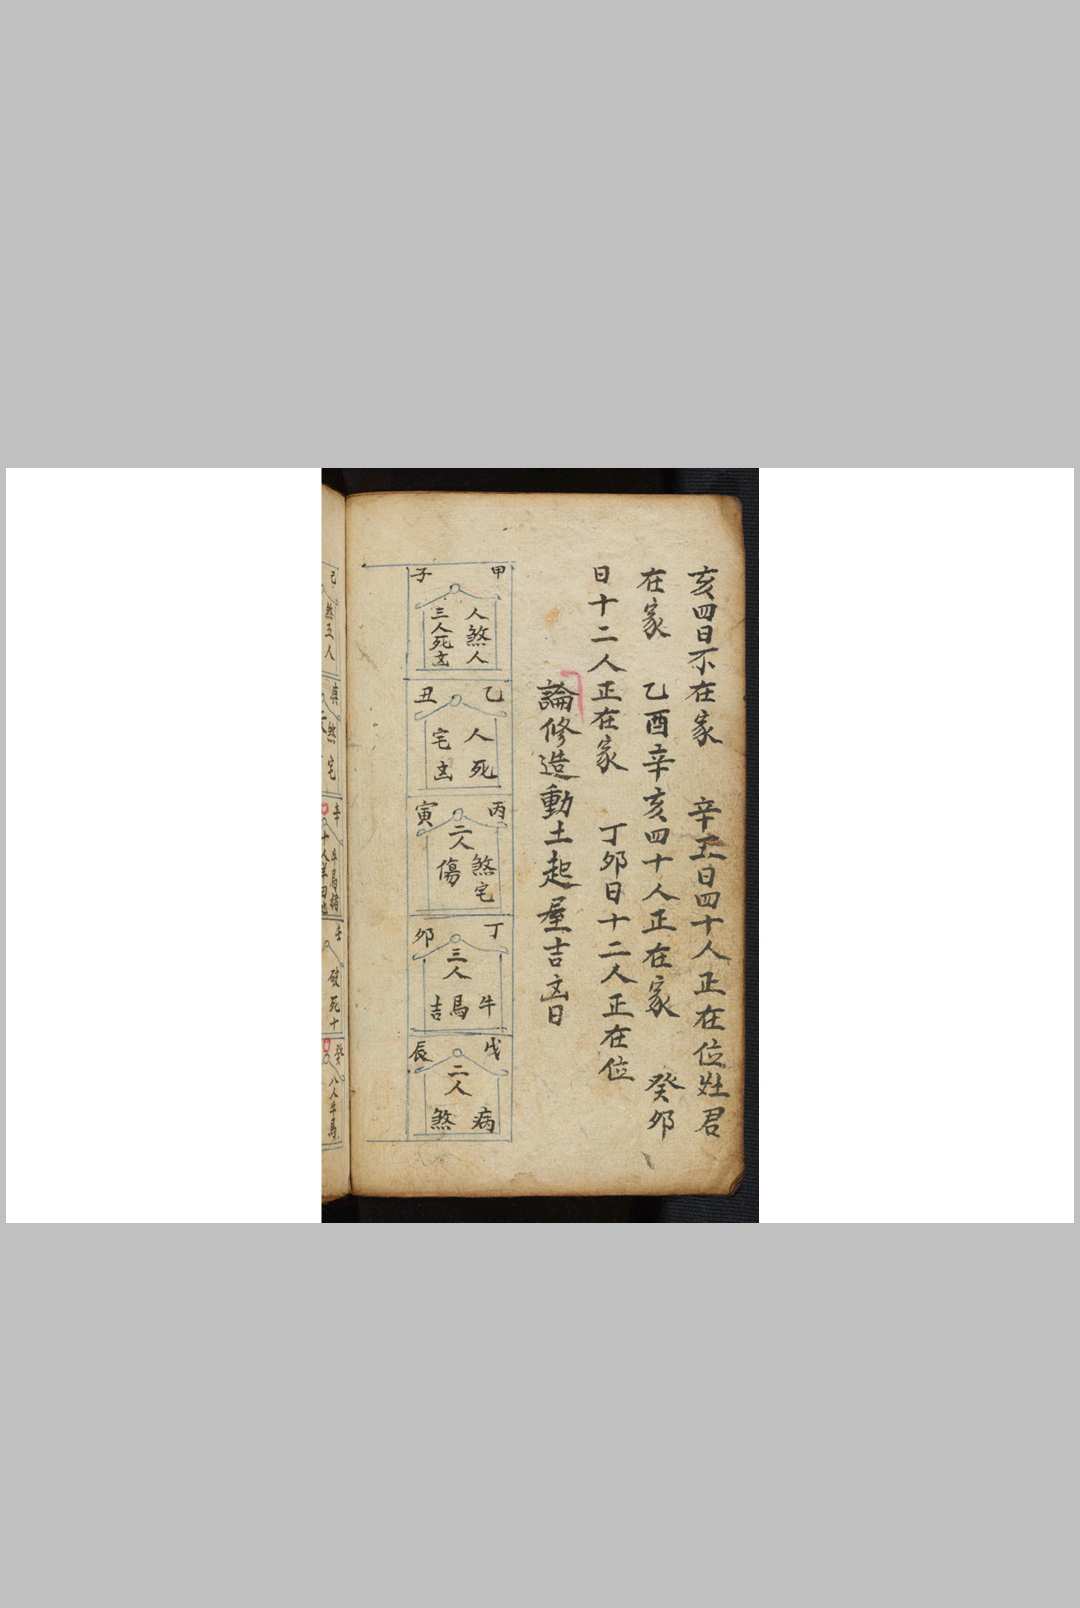 亥四日不在家　辛丑日四十人正在位灶君
在家　乙酉辛亥四十人正在家　癸卯
日十二人正在家　丁卯日十二人正在位
論修造動土起屋吉凶日
甲子
人煞人
三人死凶
乙丑
人死
宅凶
丙寅
二人
煞宅
傷
丁卯
三人
牛馬吉
戊辰
二人
病煞
己
煞五人
煞宅
辛
牛馬猪
壬
破死十
癸
八人牛馬